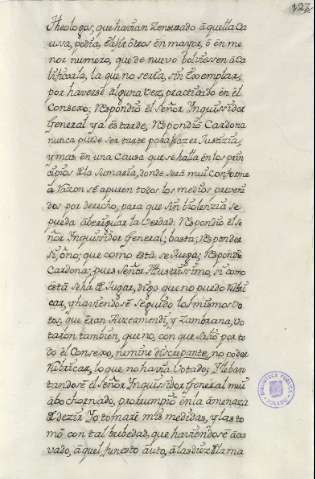 Theologos, que havian Zensurado aquella Ca
usa, podia elijir otros en mayor, ó en me
nor numero, que de nuevo bolviesen á Ca
lificarla, lo que no seria, sin Exemplar,
por haverse alguna vez, practicado en el
Consexo; Respondio el Señor Inquisidor
General ya es tarde, Respondio Cardona
nunca puede ser tarde para hazer Justizia,
y mas en una Causa que se halla en los prin
cipios de la Sumaria, donde será mui conforme
á Razon se apuren todos los medios preveni
dos por derecho, para que sin violenzia se
pueda aberiguar la Verdad: Respondio el Se
ñor Inquisidor General; basta; Responder
si, ó no; que como está se Juzga; Respondio
Cardona; pues Señor Illustrisimo, si como
está se ha de Juzgar, digo que no puedo Rubri
car, y haviendose seguido los mismos Vo
tos, que eran Arzeamendi, y Zambrana, Vo
taron tambien, que no, con que salio por to
do el Consexo, nemine discrepante, no poder
Rubricar, lo que no havia Votado; y leban
tandose el Señor Inquisidor General mui
abochornado, prorrumpio en la amenaza
de dezir Yo tomaré mis medidas, y las to
mó con tal brebedad, que haviendose aca
vado, aquel funesto auto, á las diez de la ma